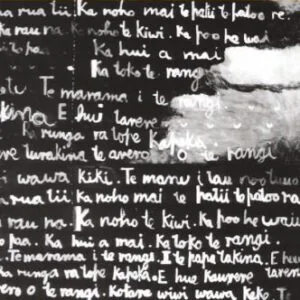 na rua tii. Ka noho mai te patii te patoo re.
ka rau na. Ka noho te kiwi. Ka poo he wai
to te paa. Ka hui a mai
Ka toko te rangi
otu. Te marama i te rangi
kina E hui tarere
ka runga ra te papa kapeka
ere turakina te arero o te rangi
i wawa kiki. Te manu i tau
a rua tii Ka noho mai te patii te patoo ra
rau na. Ka noho te kiwi. Ka poo he waiu
te paa. Ka hui a mai. Ka toko te rangi.
Te marama i te rangi. I te papa takina. E hue
ha runga ra te papa kapeka. E hue kaurere tarere
rero o te rangi. Kotare wiwi wawa keko. Te